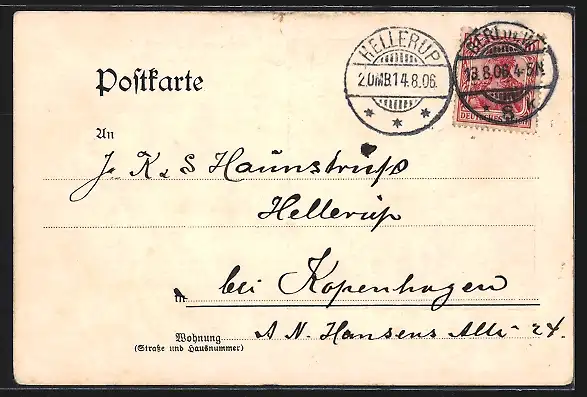 Postkarte
HELLERUP
2.OMB.14.8.06.
BERLIN
13.8.06.4-5N.
DEUTSCHES REICH
An
Hellerup
in bei Kopenhagen
Wohnung A N. Hansens Alle 24.
(Straße und Hausnummer)